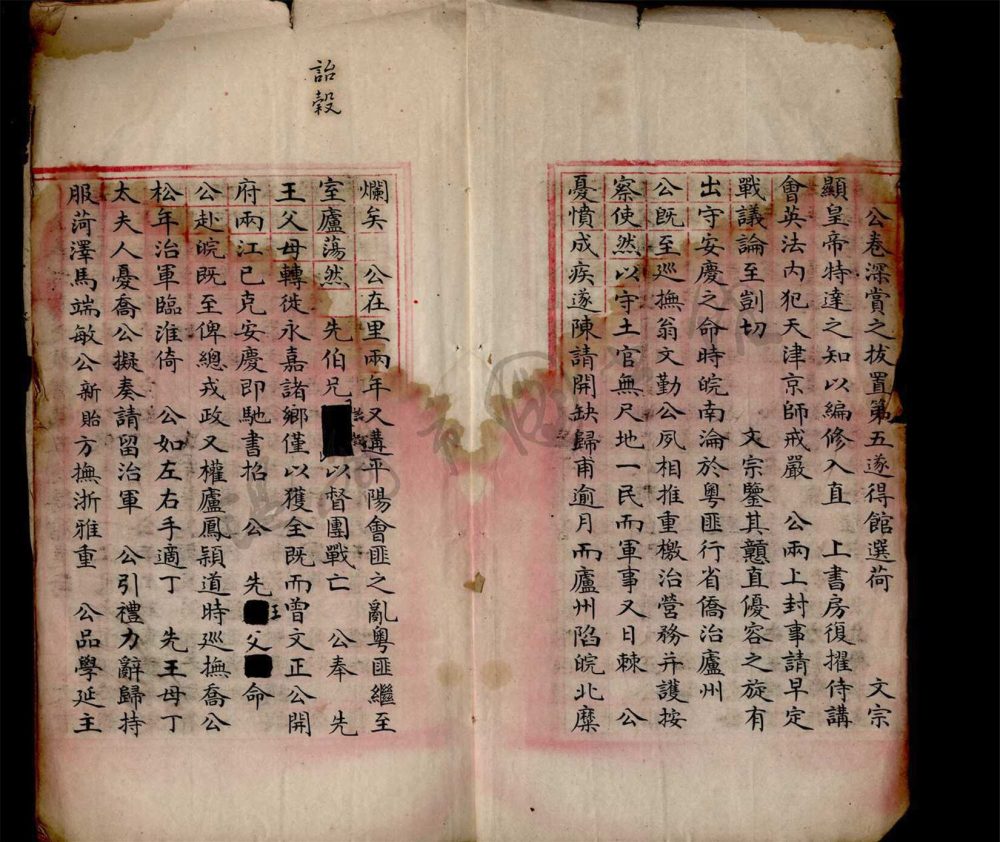 公卷深賞之拔置第五遂得館選荷　文宗
顯皇帝特達之知以編修入直　上書房復擢侍講
會英法內犯天津京師戒嚴　公兩上封事請早定
戰議論至剴切　文宗鑒其戇直優容之旋有
出守安慶之命時皖南淪於粵匪行省僑治廬州
公既至巡撫翁文勤公夙相推重檄治營務并護按
察使然以守土官無尺地一民而軍事又日棘　公
憂憤成疾遂陳請開缺歸甫逾月而廬州陷皖北糜
詒穀
爛矣　公在里兩年又遘平陽會匪之亂粵匪繼至
室廬蕩然　先伯兄以督團戰亡　公奉　先
王父母轉徙永嘉諸鄉僅以獲全既而曾文正公開
府兩江已克安慶即馳書招　公　先王父命
公赴皖既至俾總戎政又權廬鳳潁道時巡撫喬公
松年治軍臨淮倚　公如左右手適丁　先王母丁
太夫人憂喬公擬奏請留治軍　公引禮力辭歸持
服菏澤馬端敏公新貽方撫浙雅重　公品學延主